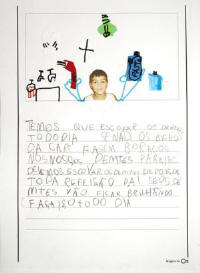 TEMOS QUE ESCOVAR OS DENTES
TODO DIA SENAU OS BICHO
DA CARI FAZEM BORACOS
NOS NOSOS DEMTES PARA ISO
DEVEMOS ESCOVAR OS DEMTES DEPOIS DE
TODA REFEISÃO DAI SEUS DE
MTES VÃO FICAR BRILHANDO
FASA ISO TODO DIA